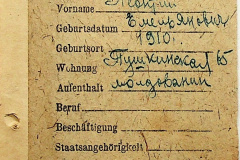 Vorname Георгий
Geburtsdatum Емельянович
Geburtsort 1910.
Wohnung Пушкинская 65
Aufenthalt молдованин
Beruf
Beschäftigung
Staatsangehörigkeit